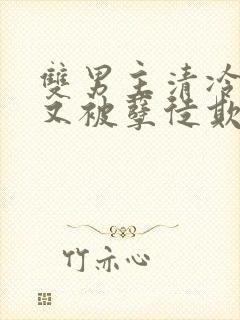 雙男主清冷
又被孽徒欺
竹亦心